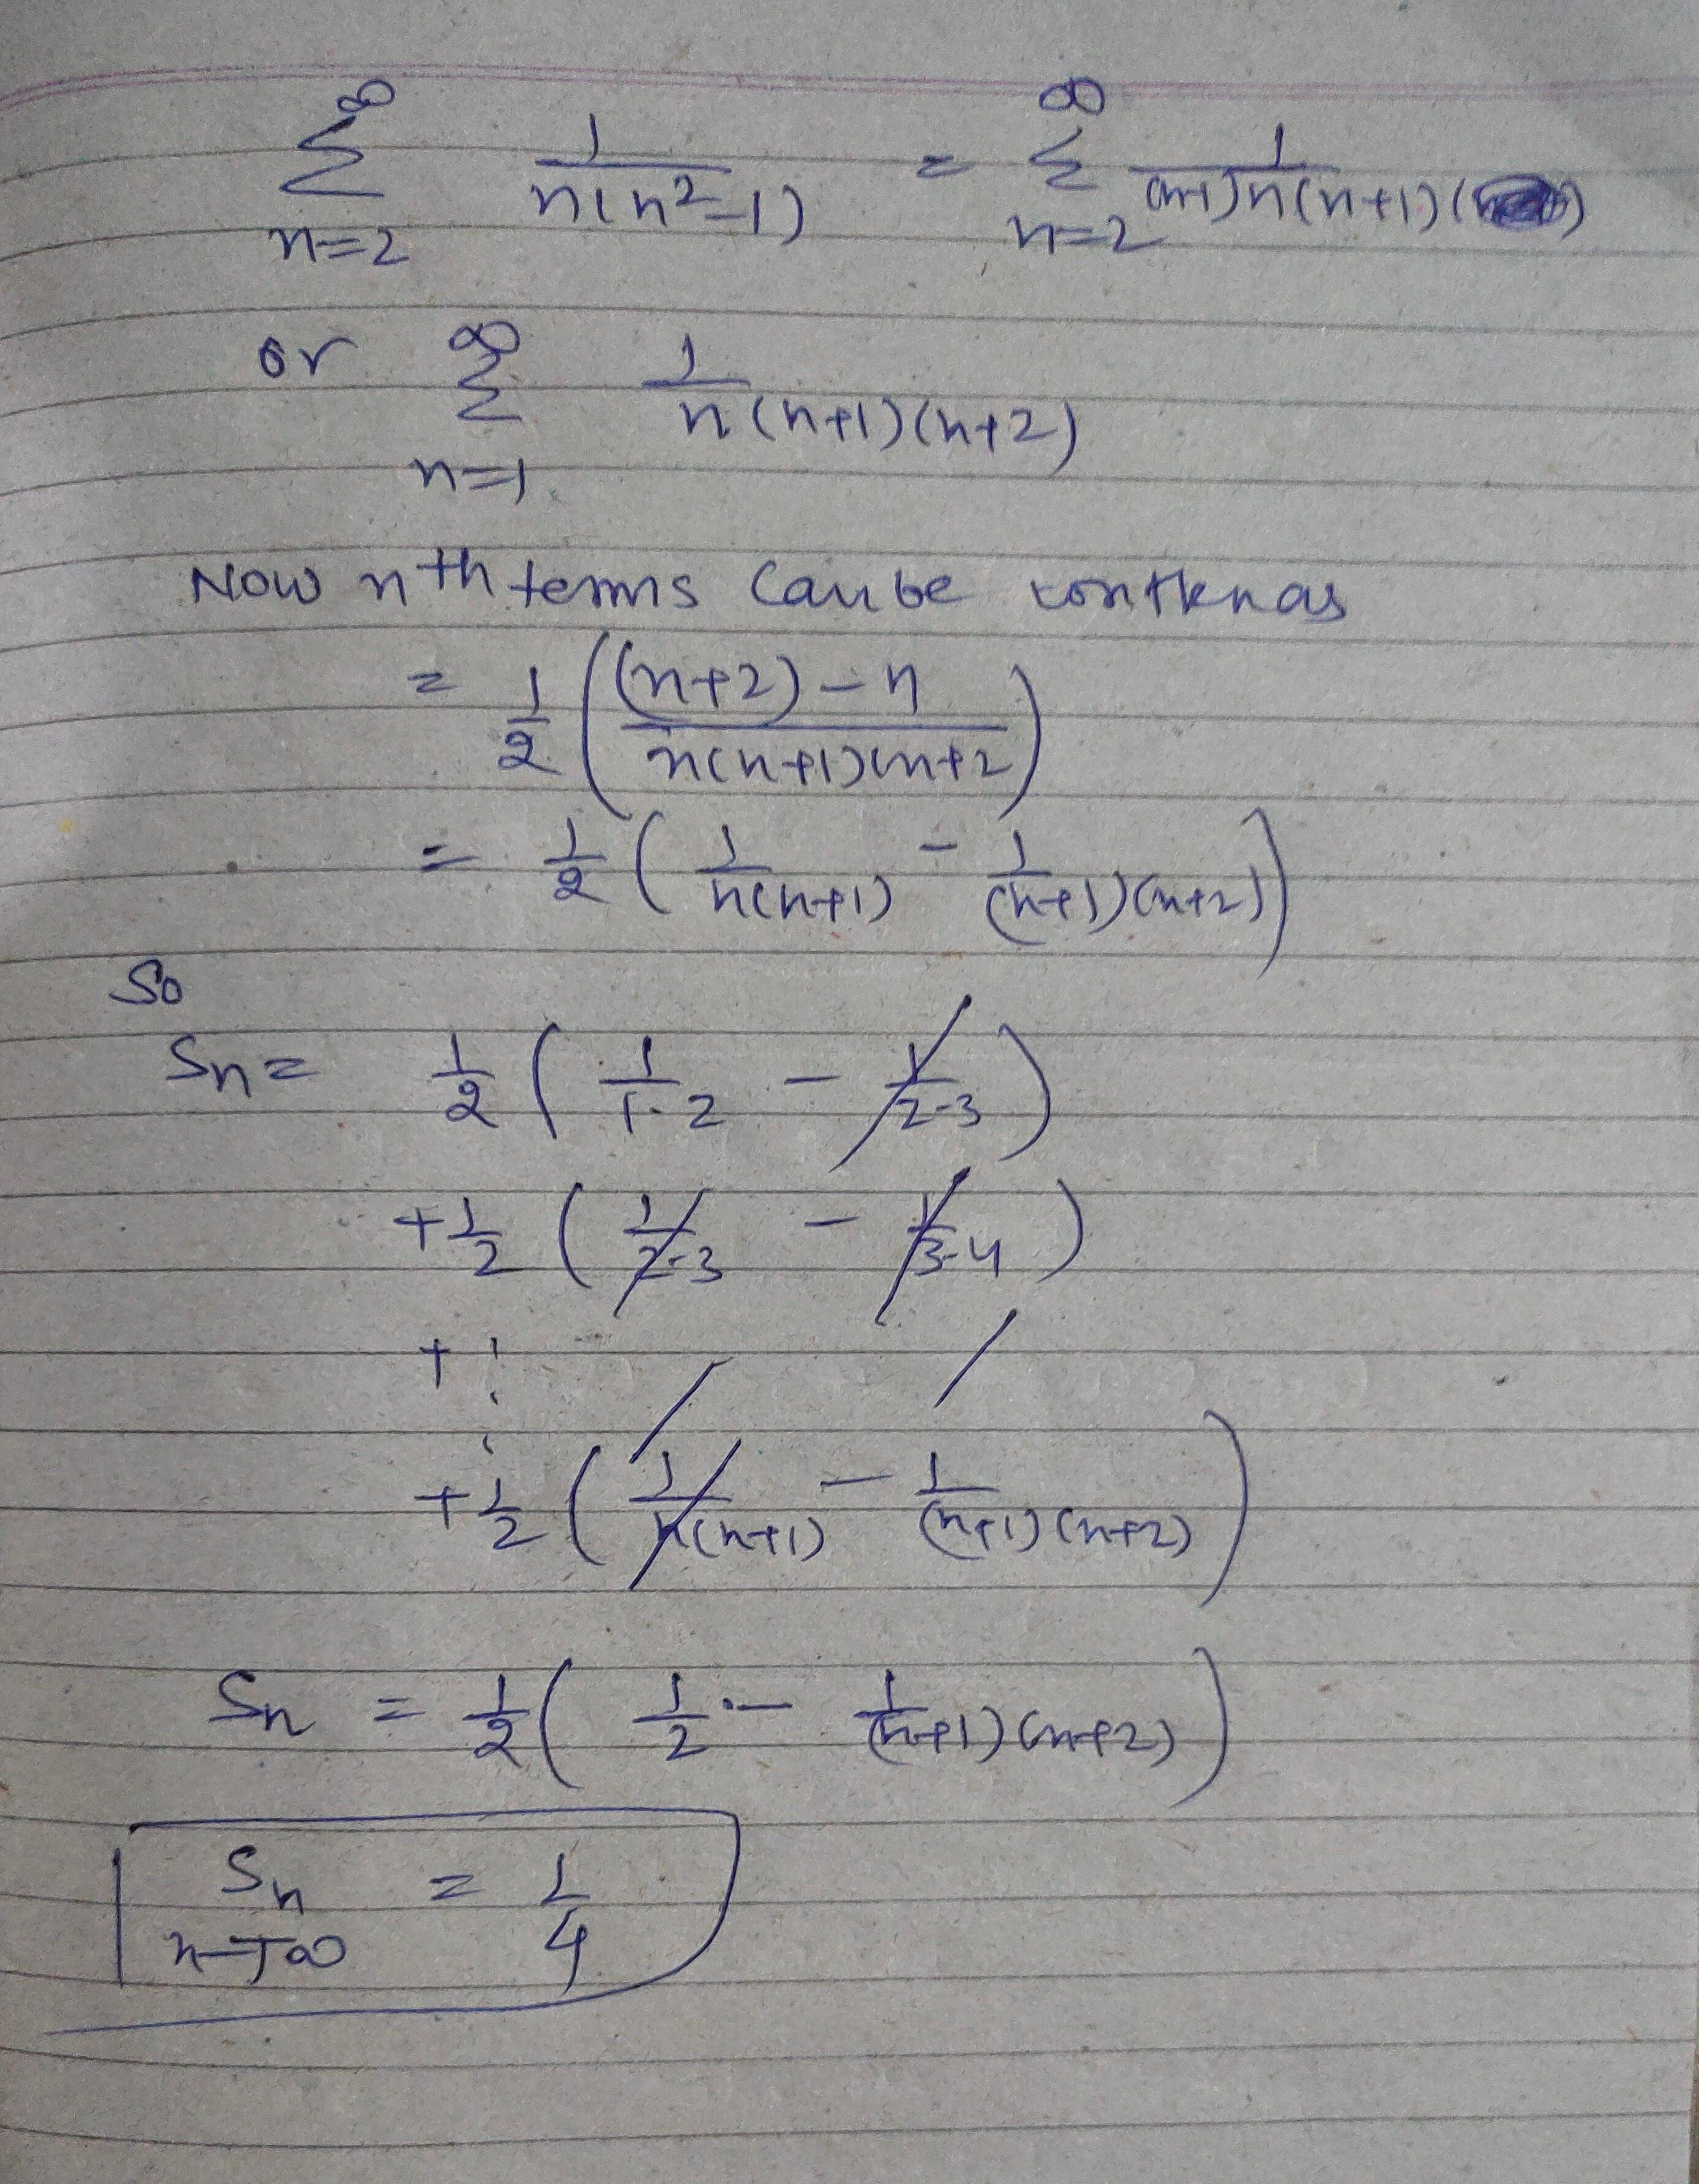 ∞ ∑ n=2 1/n(n²-1) = ∞ ∑ n=2 1/(n-1)n(n+1)
or ∞ ∑ n=1 1/n(n+1)(n+2)
Now nth terms can be as
= 1/2 ( (n+2)-n / n(n+1)(n+2 )
= 1/2 ( 1/n(n+1) - 1/(n+1)(n+2) )
So
Sn = 1/2 ( 1/1·2 - 1/2·3 )
+ 1/2 ( 1/2·3 - 1/3·4 )
+ ⋮
+ 1/2 ( 1/n(n+1) - 1/(n+1)(n+2) )
Sn = 1/2 ( 1/2 - 1/(n+1)(n+2) )
Sn n→∞ = 1/4